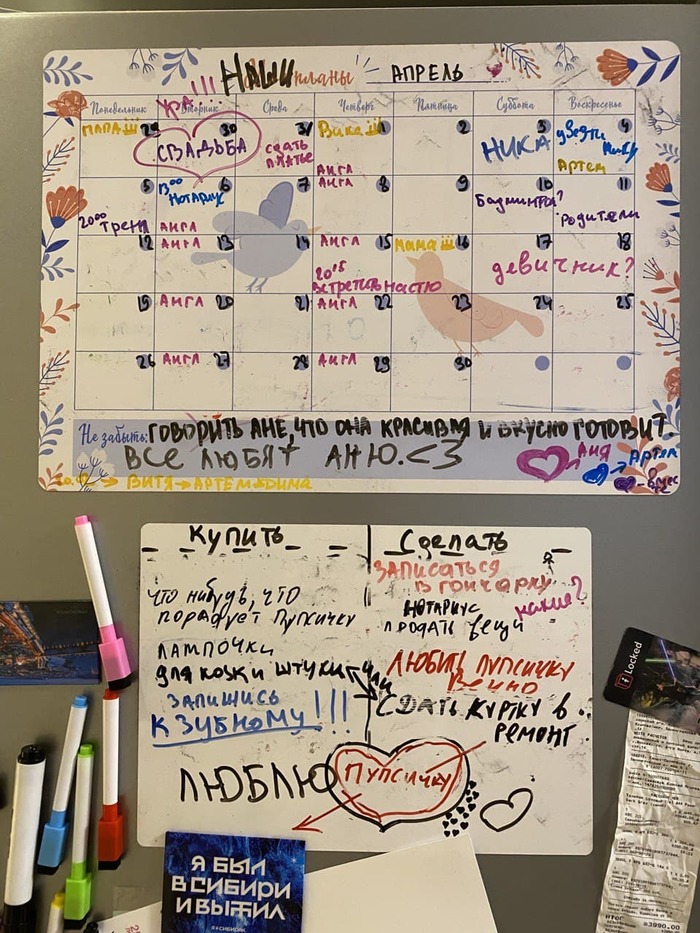 НАШИ планы АПРЕЛЬ
УРА!!!
Понедельник Вторник Среда Четверг Пятница Суббота Воскресенье
ПАПА 29 30 31 Вика 1 2 3 4
СВАДЬБА
сдать платье
НИКА
Артем
Англ
5 13 00 Нотариус 6 7 Англ 8 9 10 11
Бадминтон?
родители
20 00 Трень Англ
12 Англ 13 14 Англ 15 Мама 16 17 18
девичник?
20 15
встретить Настю
19 Англ 20 21 Англ 22 23 24 25
26 Англ 27 28 Англ 29 30
Не забыть: ГОВОРИТЬ АНЕ, ЧТО ОНА КРАСИВАЯ И ВКУСНО ГОТОВИТ.
ВСЕ ЛЮБЯТ АНЮ. <3
Аня
Артем
ВИТЯ → АРТЕМ Дима
Купить
что нибудь, что
порадует Пупсичку
ЛАМПОЧКИ
для кожи штуки
ЗАПИШИСЬ
К ЗУБНОМУ!!!
Сделать
ЗАПИСАТЬСЯ
в гончарку
какие?
НОТАРИУС
ПРОДАТЬ вещи
ЛЮБИТЬ ПУПСИЧКУ
Вечно
СДАТЬ КУРТКУ в
РЕМОНТ
ЛЮБЛЮ ПУПСИЧКУ
Я БЫЛ
В СИБИРИ
И ВЫЖИЛ
Locked
3990.00